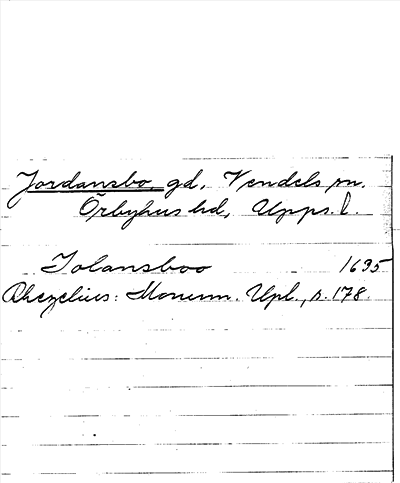 Jordansbo, gd, Vendels sn.
Örbyhus hd, Upps. l.
Jolansboo 1635
Rhezelius: Monum. Upl., s. 178.